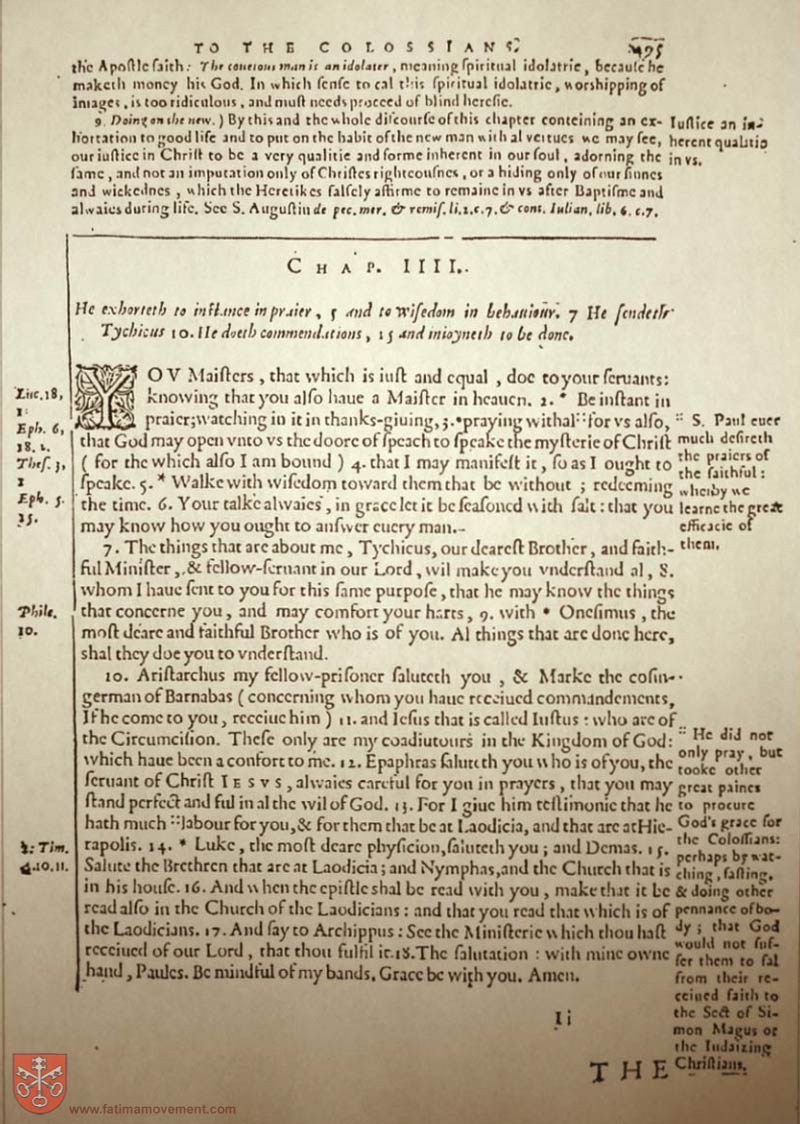 TO THE COLOSSIANS. 495
the Apostle ſaith: The couetous man is an idolater, meaning ſpiritual idolatrie, becauſe he
maketh money his God. In which ſenſe to cal this ſpiritual idolatrie, worſhipping of
images, is too ridiculous, and muſt needs proceed of blind hereſie.
9. Doing on the new.) By this and the whole diſcourſe of this chapter conteining an ex-
hortation to good life and to put on the habit of the new man with al vertues we may ſee,
our iuſtice in Chriſt to be a very qualitie and forme inherent in our ſoul, adorning the
ſame, and not an imputation only of Chriſtes righteouſnes, or a hiding only of our ſinnes
and wickednes, which the Heretikes falſely affirme to remaine in vs after Baptiſme and
alwaies during life. See S. Auguſtin de pec. mer. & remiſ. li.1.c.7. & cont. Iulian. lib. 6. c.7.
Iuſtice an in-
herent qualitie
in vs.
CHAP. IIII.
He exhorteth to inſtance in praier, 5 and to wiſedom in behauiour. 7 He ſendeth
Tychicus 10. He doeth commendations, 15 and inioyneth to be done.
YOV Maiſters, that which is iuſt and equal, doe to your ſeruants:
knowing that you alſo haue a Maiſter in heauen. 2. * Be inſtant in
praier; watching in it in thanks-giuing, 3. * praying withal :: for vs alſo,
that God may open vnto vs the doore of ſpeach to ſpeake the myſterie of Chriſt
( for the which alſo I am bound ) 4. that I may manifeſt it, ſo as I ought to
ſpeake. 5. * Walke with wiſedom toward them that be without; redeeming
the time. 6. Your talke alwaies, in grace let it be ſeaſoned with ſalt: that you
may know how you ought to anſwer euery man.
7. The things that are about me, Tychicus, our deareſt Brother, and faith-
ful Miniſter, & fellow-ſeruant in our Lord, wil make you vnderſtand al, 8.
whom I haue ſent to you for this ſame purpoſe, that he may know the things
that concerne you, and may comfort your harts, 9. with * Oneſimus, the
moſt deare and faithful Brother who is of you. Al things that are done here,
shal they doe you to vnderſtand.
10. Ariſtarchus my fellow-priſoner ſaluteth you, & Marke the coſin-
german of Barnabas ( concerning whom you haue receiued commandements,
If he come to you, receiue him ) 11. and Ieſus that is called Iuſtus: who are of
the Circumciſion. Theſe only are my coadiutours in the Kingdom of God:
which haue been a confort to me. 12. Epaphras ſaluteth you who is of you, the
ſeruant of Chriſt IESVS, alwaies careful for you in prayers, that you may
ſtand perfect and ful in al the wil of God. 13. For I giue him teſtimonie that he
hath much :: labour for you, & for them that be at Laodicia, and that are at Hie-
rapolis. 14. * Luke, the moſt deare phyſicion, ſaluteth you; and Demas. 15.
Salute the Brethren that are at Laodicia; and Nymphas, and the Church that is
in his houſe. 16. And when the epiſtle shal be read with you, make that it be
read alſo in the Church of the Laodicians: and that you read that which is of
the Laodicians. 17. And ſay to Archippus: See the Miniſterie which thou haſt
receiued of our Lord, that thou fulfil it. 18. The ſalutation: with mine owne
hand, Paules. Be mindful of my bands. Grace be with you. Amen.
Luc. 18,
1.
Eph. 6,
18. 2.
Theſ. 3,
1
Eph. 5.
15.
Phile.
10.
2. Tim.
4. 10. 11.
:: S. Paul euer
much deſireth
the praiers of
the faithful:
wherby we
learne the great
efficacie of
them.
:: He did not
only pray, but
tooke other
great paines
to procure
God's grace for
the Coloſſians:
perhaps by wat-
ching, faſting,
& doing other
pennance of bo-
dy; that God
would not ſuf-
fer them to fal
from their re-
ceiued faith to
the Sect of Si-
mon Magus or
the Iudaizing
Chriſtians.
Ii
THE
www.fatimamovement.com